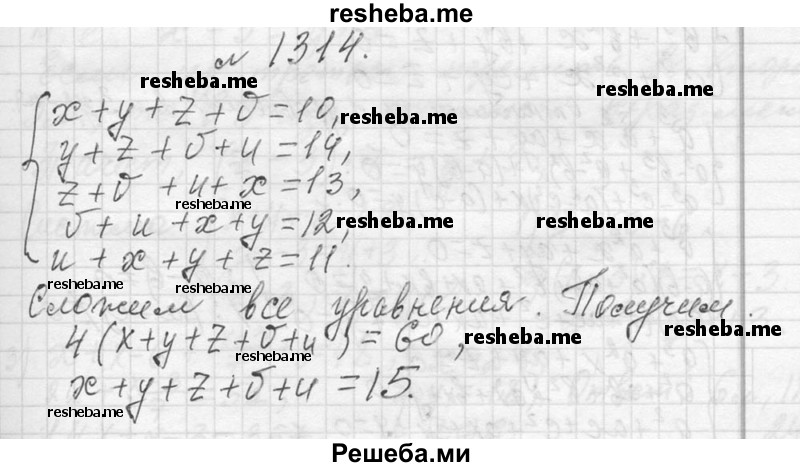 resheba.me
№ 1314.
resheba.me
resheba.me
x + y + z + υ = 10,
resheba.me
y + z + υ + u = 14,
z + υ + u + x = 13,
resheba.me
υ + u + x + y = 12,
resheba.me
resheba.me
u + x + y + z = 11.
resheba.me
Сложим все уравнения. Получим.
resheba.me
4 (x + y + z + υ + u) = 60,
resheba.me
resheba.me
x + y + z + υ + u = 15.
resheba.me
Решеба.ми